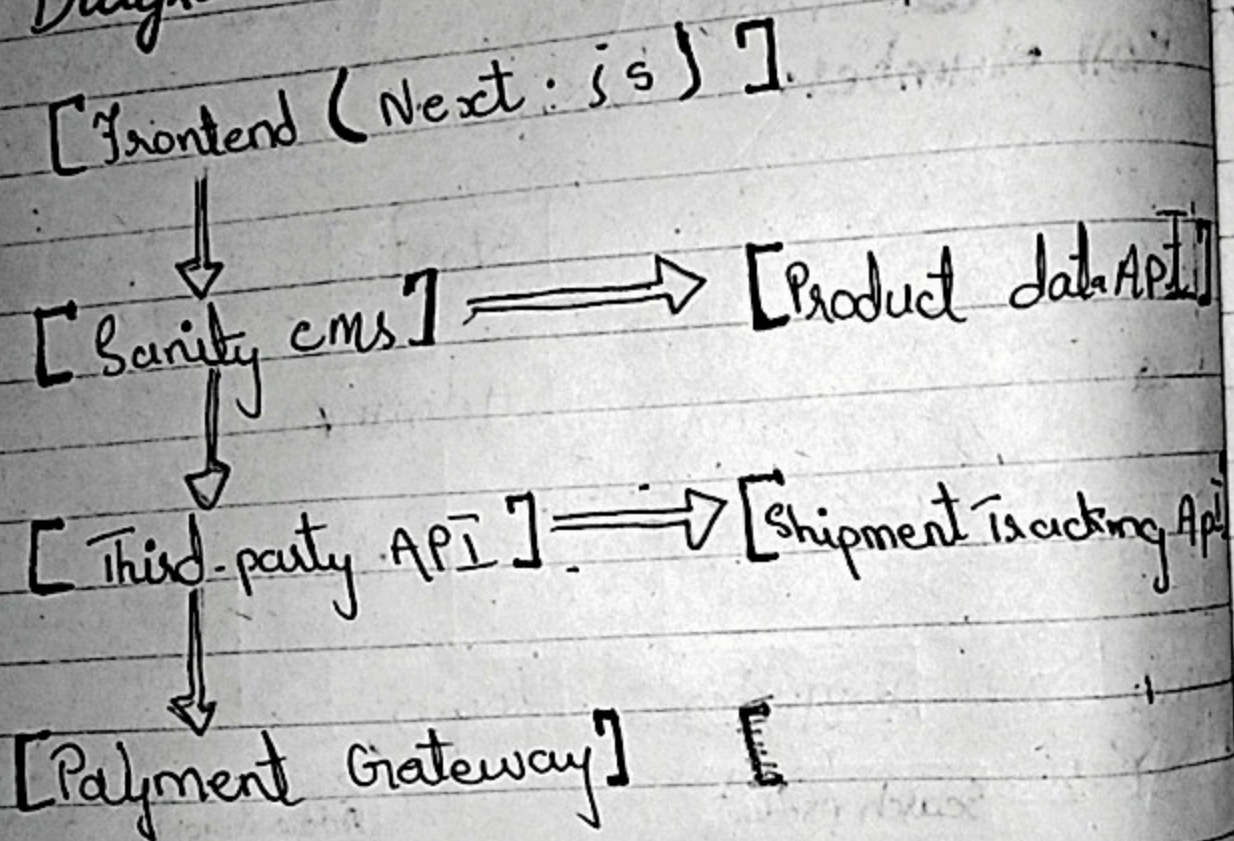 [Frontend (Next.js)]
[Sanity cms] [Product data API]
[Third-party API] [Shipment Tracking Api]
[Payment Gateway] [